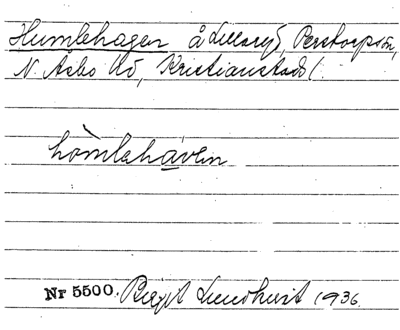 Humlehagen å Lillaryd, Perstorp sn,
N. Åsbo hd, Kristianstads l.
hòmlehávən
Nr 5500. Birgit Lundkvist 1936.